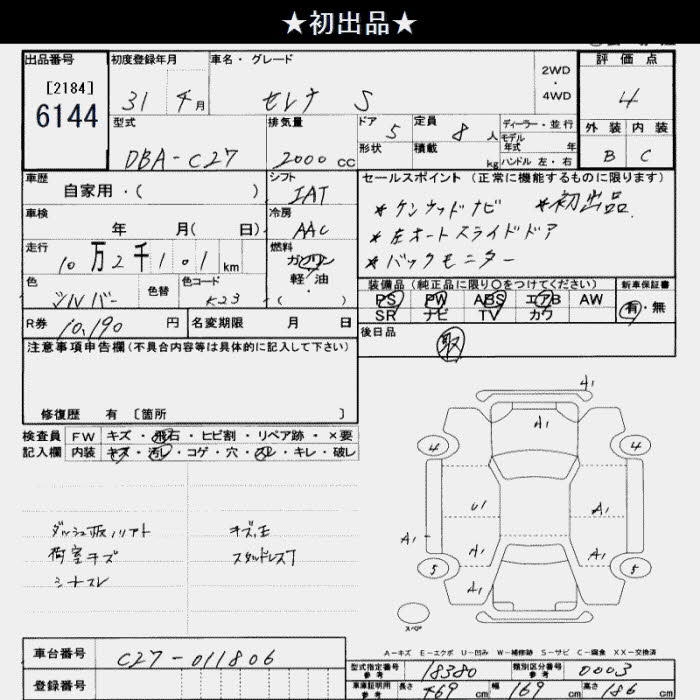 ★初出品★
出品番号 初度登録年月 車名・グレード 評価点
[2184] 31年 月 セレナ S 2WD・4WD 4
6144
型式 排気量 ドア 5 定員 8人 ディーラー・並行 外装 内装
DBA-C27 2000 CC 形状 積載 kg モデル年式 年 B C
ハンドル 左・右
車歴 シフト セールスポイント(正常に機能するものに限ります)
自家用・( ) IAT *ケンウッドナビ *初出品
車検 冷房 *左オートスライドドア
年 月( 日) AAC *バックモニター
走行 燃料
10万2千101km ガソリン
軽・油
( )
色 色替 色コード 装備品(純正品に限り○をつけてください) 新車保証書
シルバー K23 PS PW ABS エアB AW 有・無
SR ナビ TV カワ
R券 10,190円 名変期限 月 日 後日品
取
注意事項申告欄(不具合内容等は具体的に記入して下さい)
修復歴 有 [箇所 ]
検査員 FW キズ・飛石・ヒビ割・リペア跡・×要
記入欄 内装 キズ・汚レ・コゲ・穴・スレ・キレ・破レ
キズ
荷室キズ スタッドレス
シートスレ
A1
A1
4 4
U1 A1
A1 A1 A1
5 5
A1
スペア
A-キズ E-エクボ U-凹み W-補修跡 S-サビ C-腐食 XX-交換済
車台番号 C27-011806
型式指定番号 参考 18380 類別区分番号 参考 0003
登録番号
車庫証明用 参考 長さ 469cm 幅 169cm 高さ 186cm